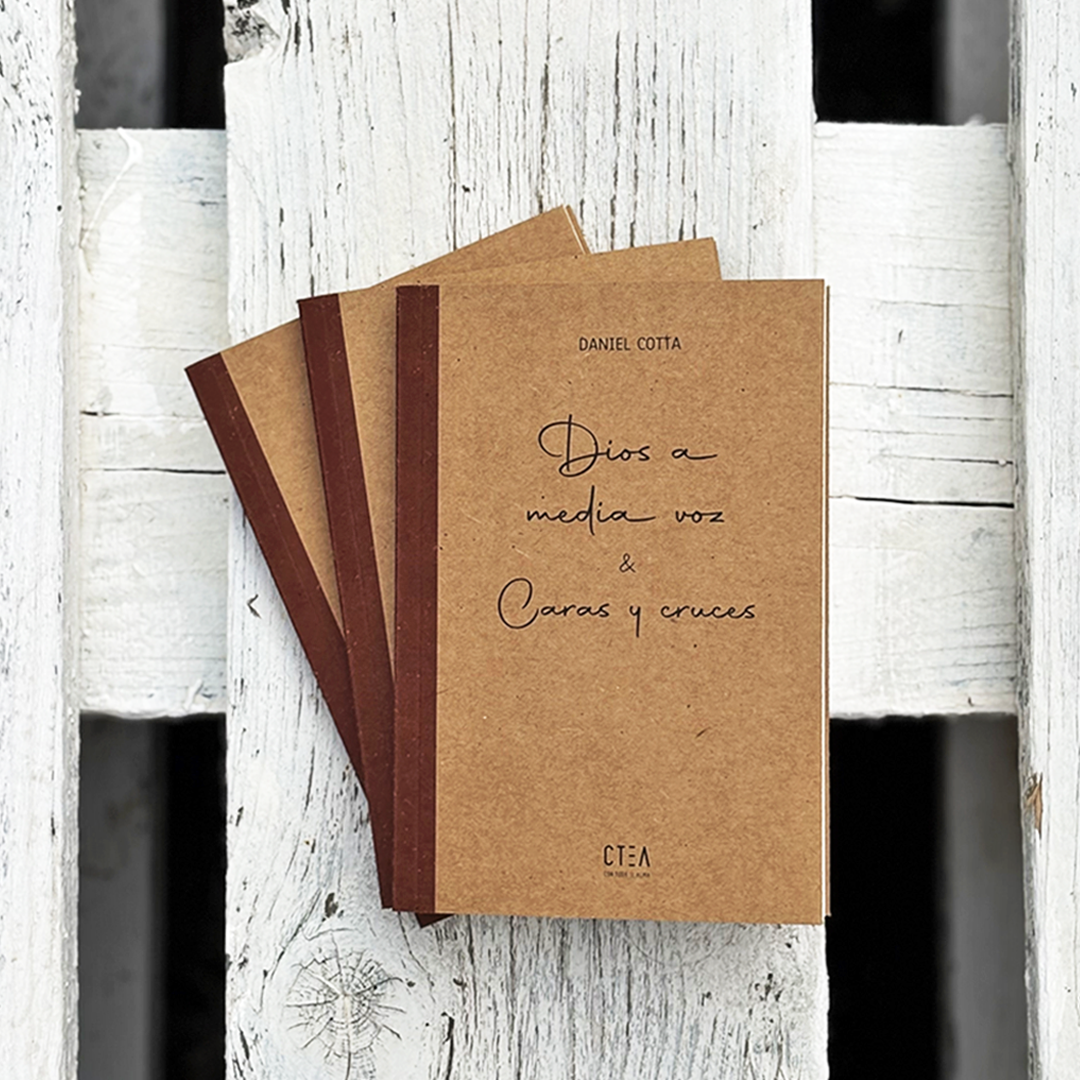 DANIEL COTTA
Dios a
media voz
&
Caras y cruces
CTEA
CON TODO EL ALMA